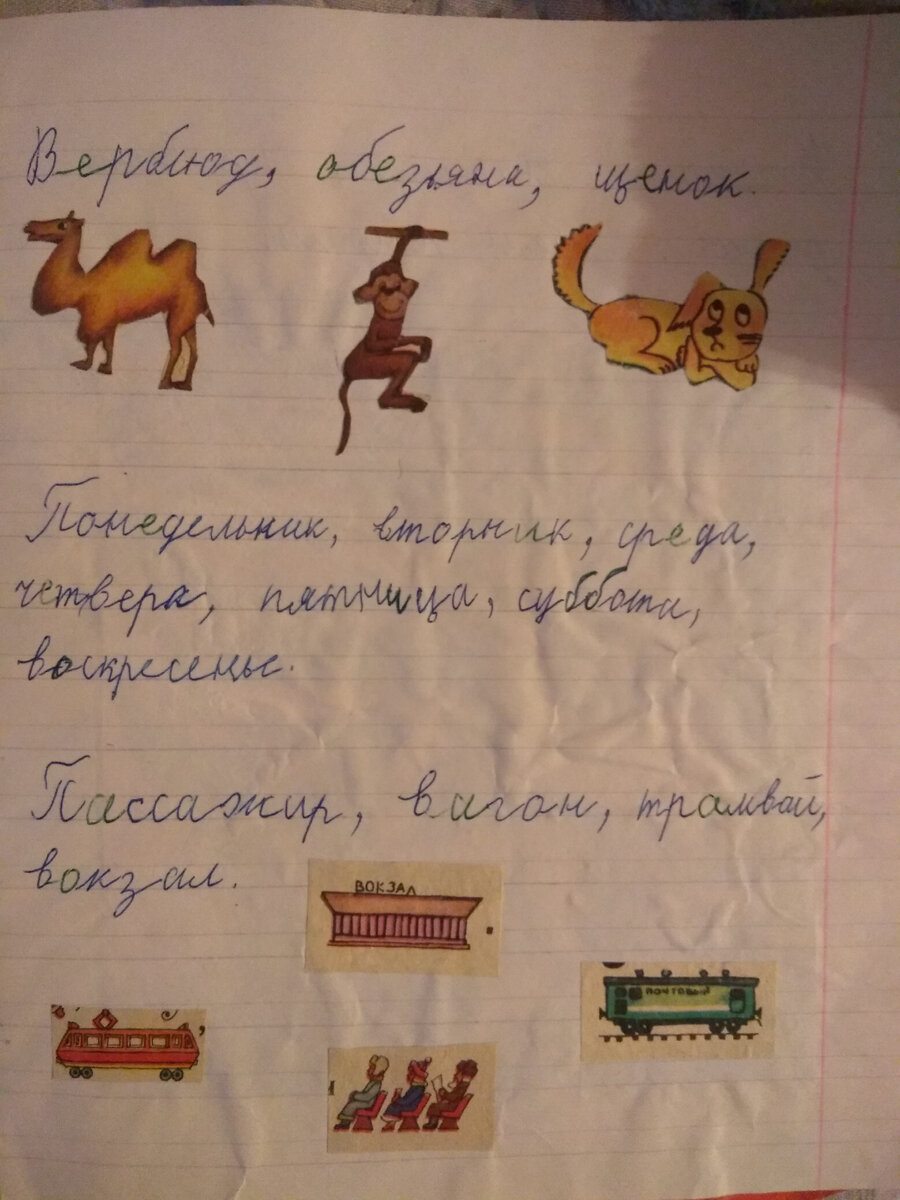 Верблюд, обезьяна, щенок.
Понедельник, вторник, среда,
четверг, пятница, суббота,
воскресенье.
Пассажир, вагон, трамвай,
вокзал.
ВОКЗАЛ
ПОЧТОВЫЙ